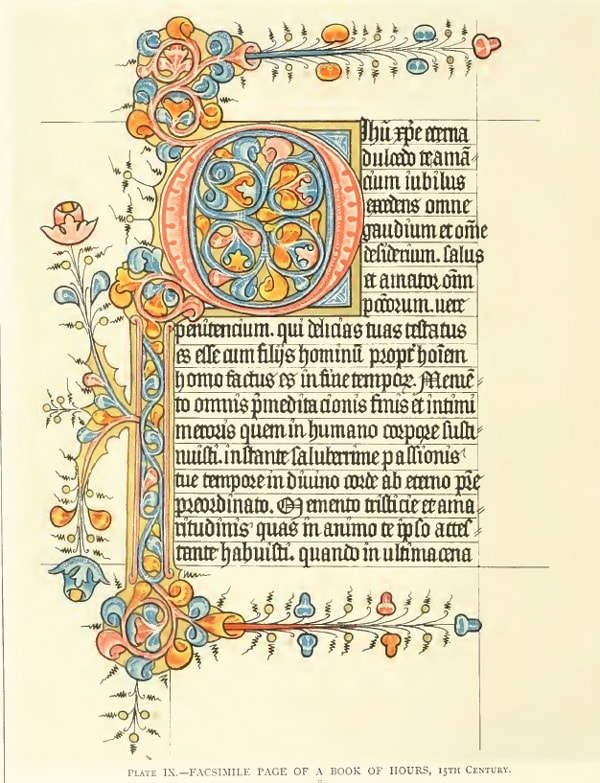 O Ihū xp̄e eterna
dulcedo te amā
cium iubilus
excedens omne
gaudium et om̄e
desiderium. salus
et amator om̄n
pctōrum. uere
penitencium. qui delicias tuas testatus
es esse cum filijs hominū propt' hoīem
homo factus es in fine tempor. Memē
to omnis p̄meditacionis finis et intimi
meroris quem in humano corpore susti
nuisti. instante saluberrime passionis
tue tempore in diuino corde ab eterno p̄re
preordinato. Memento tristicie et ama
ritudinis quas in animo te ipso attes
tante habuisti. quando in ultima cena
PLATE IX.—FACSIMILE PAGE OF A BOOK OF HOURS, 15TH CENTURY.